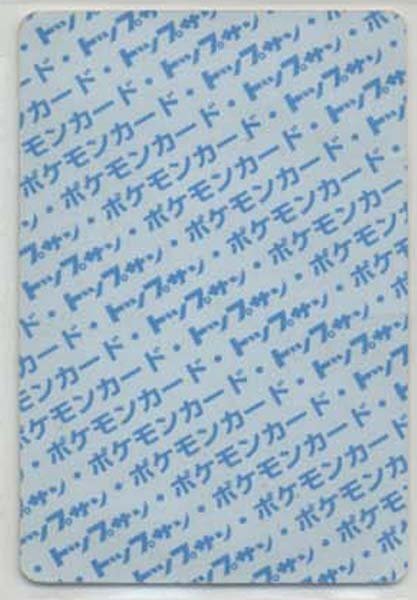 ド・トップサン・
カード・トップサン・
モンカード・トップサン・ポ
ポケモンカード・トップサン・
ン・ポケモンカード・トップサン
プサン・ポケモンカード・トップ
トップサン・ポケモンカード・ト
ド・トップサン・ポケモンカード・
カード・トップサン・ポケモンカー
モンカード・トップサン・ポケモン
ケモンカード・トップサン・ポケモ
・ポケモンカード・トップサン・ポ
サン・ポケモンカード・トップサン・
トップサン・ポケモンカード・トップ
・トップサン・ポケモンカード・
トップサン・ポケモンカ
トップサン・ポ